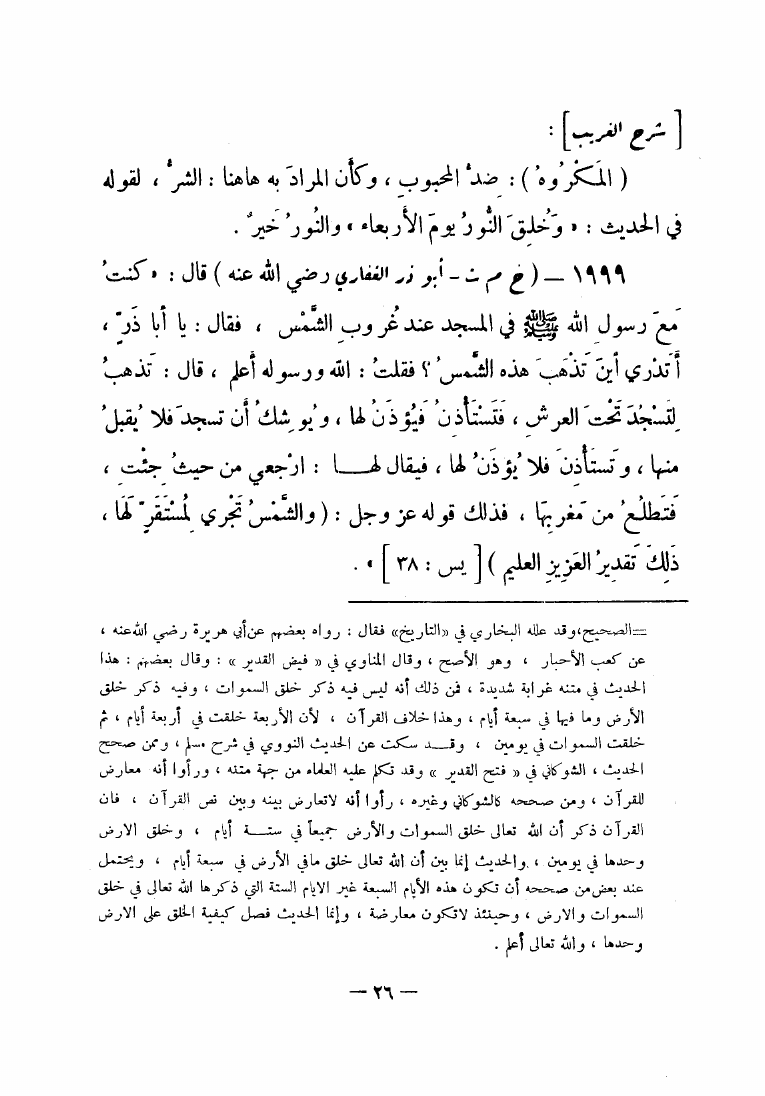 [ شرح الغريب ] :
( المَكْرُوهُ ) : ضدُّ المحبوبِ ، وكأن المرادَ به هاهنا : الشرُّ ، لقوله
في الحديث : « وَخُلِقَ النُّورُ يومَ الأربعاء » والنُورُ خَيرٌ .
١٩٩٩ — ( خ م ت - أبو ذر الغفاري رضي الله عنه ) قال : « كنتُ
مَعَ رسولِ الله ﷺ في المسجد عند غُروبِ الشَّمْسِ ، فقال : يا أبا ذَرٍّ ،
أَتَدْري أينَ تَذْهَبُ هذه الشَّمسُ ؟ فقلتُ : الله ورسوله أعلم ، قال : تَذهبُ
لِتَسْجُدَ تَحْتَ العرشِ ، فَتَسْتَأْذِنُ فَيُؤذَنُ لها ، ويُوشكُ أن تسجدَ فلا يُقبلُ
منها ، وتَستأذِنَ فلا يُؤذَنُ لها ، فيقال لهـــا : ارْجعي من حيثُ جِئْتِ ،
فَتَطلُعُ من مَغربِهَا ، فذلك قوله عز وجل : ( والشَّمْسُ تَجْري لِمُسْتَقَرٍّ لَهَا ،
ذَلِكَ تَقديرُ العَزِيزِ العليم ) [ يس : ٣٨ ] » .
=الصحيح،وقد علله البخاري في «التاريخ» فقال : رواه بعضهم عن أبي هريرة رضي الله عنه ،
عن كعب الأحبار ، وهو الأصح ، وقال المناوي في « فيض القدير » : وقال بعضهم : هذا
الحديث في متنه غرابة شديدة ، فمن ذلك أنه ليس فيه ذكر خلق السموات ، وفيه ذكر خلق
الأرض وما فيها في سبعة أيام ، وهذا خلاف القرآن ، لأن الأربعة خلقت في أربعة أيام ، ثم
خلقت السموات في يومين ، وقـــد سكت عن الحديث النووي في شرح مسلم ، وممن صحح
الحديث ، الشوكاني في « فتح القدير » وقد تكلم عليه العلماء من جهة متنه ، ورأوا أنه معارض
للقرآن ، ومن صححه كالشوكاني وغيره ، رأوا أنه لاتعارض بينه وبين نص القرآن ، فان
القرآن ذكر أن الله تعالى خلق السموات والأرض جميعاً في ستـــة أيام ، وخلق الارض
وحدها في يومين ، والحديث إنما بين أن الله تعالى خلق مافي الأرض في سبعة أيام ، ويحتمل
عند بعض من صححه أن تكون هذه الأيام السبعة غير الايام الستة التي ذكرها الله تعالى في خلق
السموات والارض ، وحينئذ لاتكون معارضة ، وإنما الحديث فصل كيفية الخلق على الارض
وحدها ، والله تعالى أعلم .
— ٢٦ —